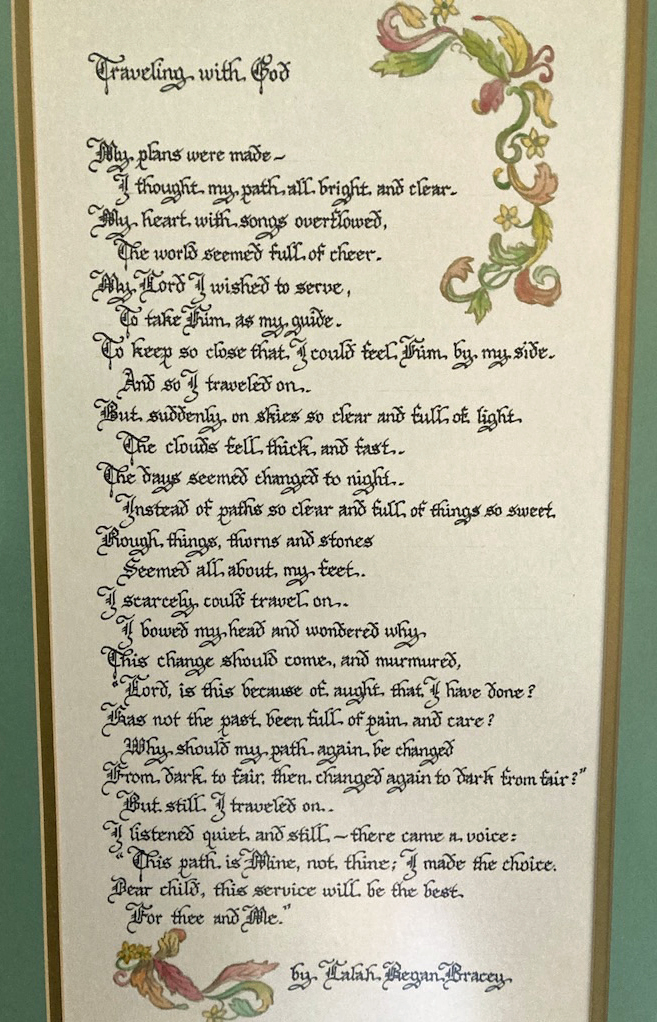 Traveling with God
My plans were made~
I thought my path all bright and clear.
My heart with songs overflowed,
The world seemed full of cheer.
My Lord I wished to serve,
To take Him as my guide.
To keep so close that I could feel Him by my side.
And so I traveled on.
But suddenly on skies so clear and full of light
The clouds fell thick and fast.
The days seemed changed to night.
Instead of paths so clear and full of things so sweet
Rough things, thorns and stones
Seemed all about my feet.
I scarcely could travel on.
I bowed my head and wondered why
This change should come, and murmured,
"Lord, is this because of aught that I have done?
Has not the past been full of pain and care?
Why should my path again be changed
From dark to fair then changed again to dark from fair?"
But still I traveled on.
I listened quiet and still~there came a voice:
"This path is Mine, not thine; I made the choice.
Dear child, this service will be the best
For thee and Me."
by Lalah Regan Bracey